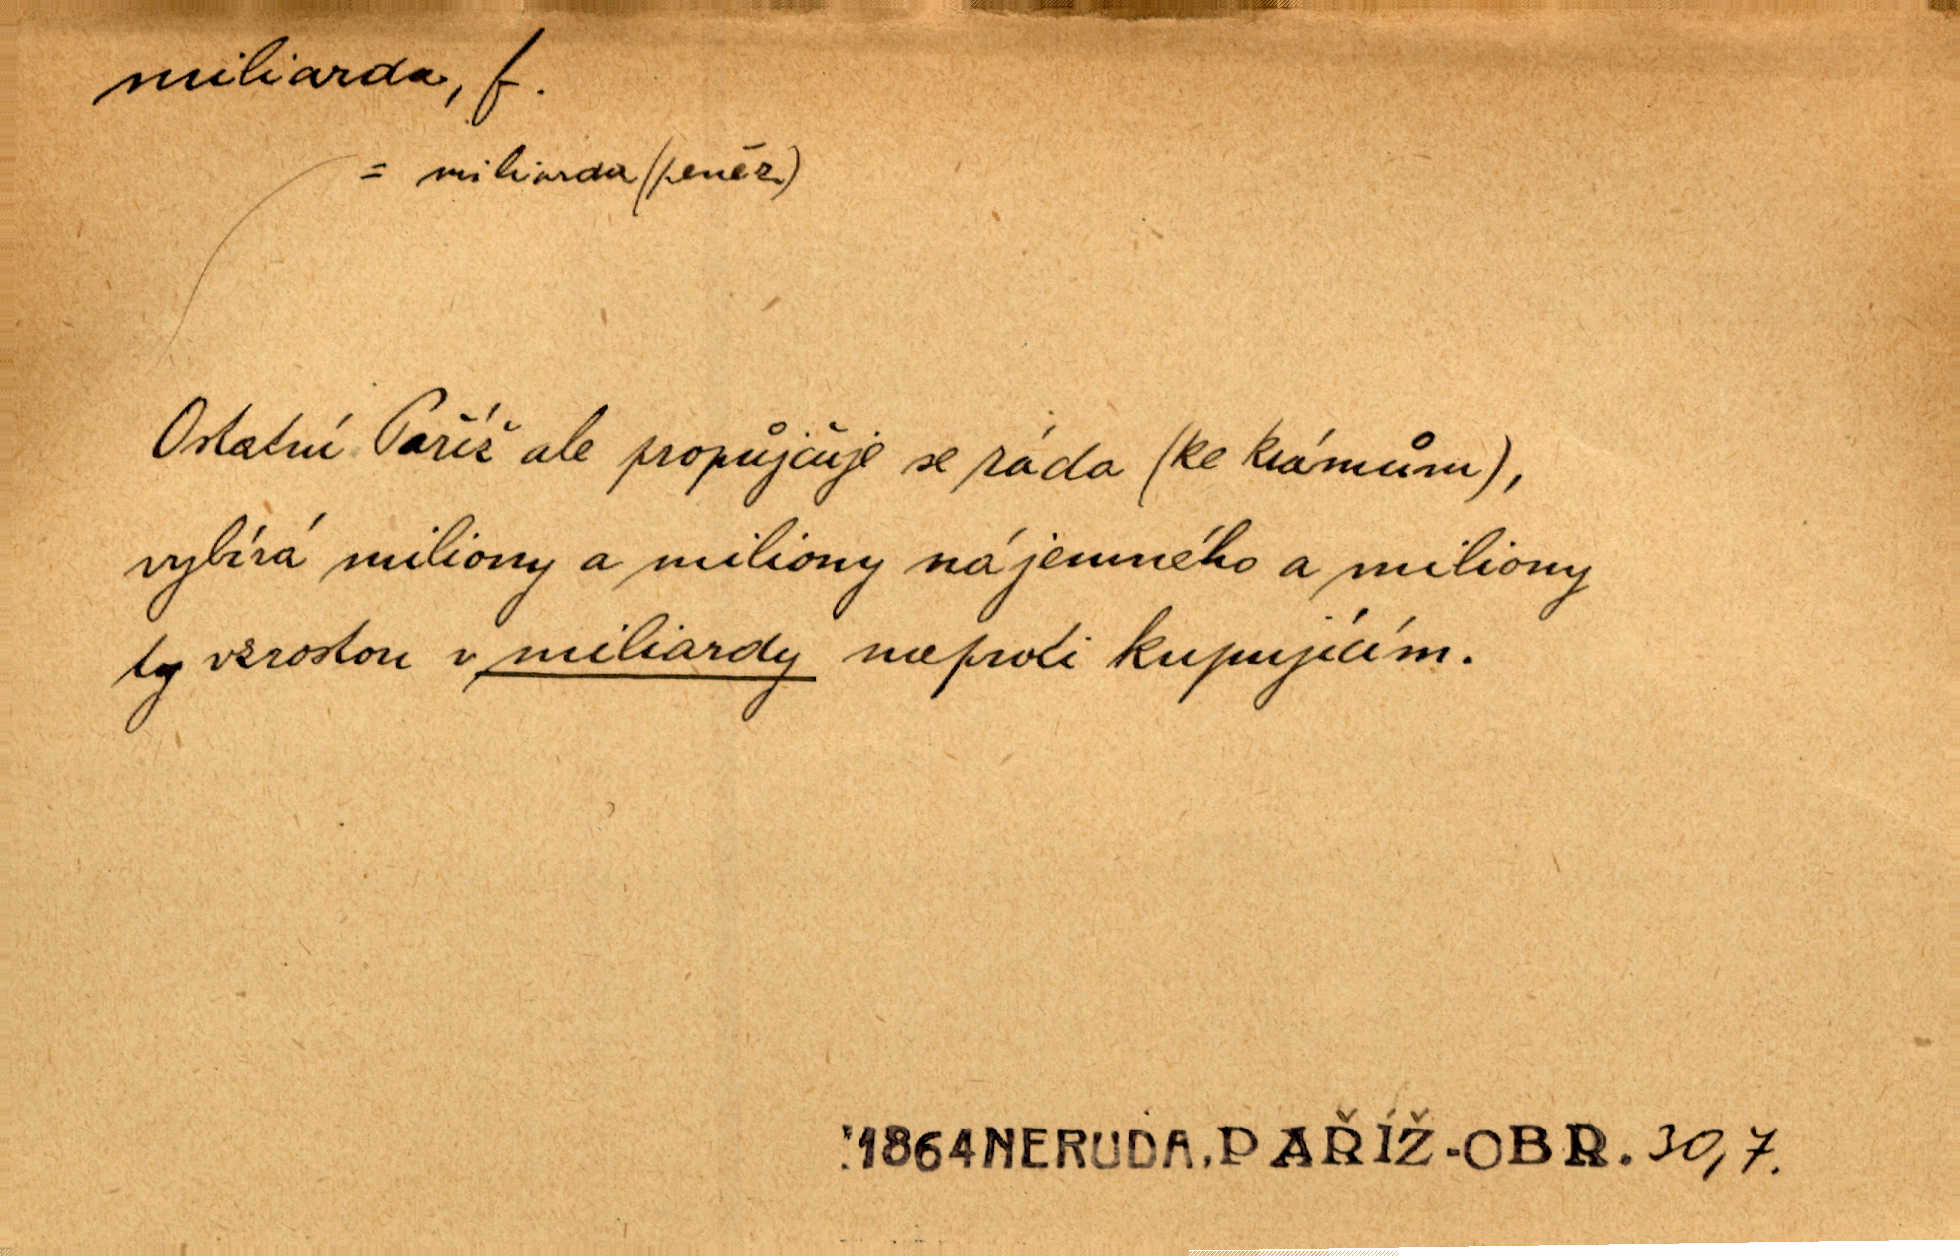 miliarda, f.
= miliarda (peněz)
Ostatní Paříž ale propůjčuje se ráda (ke krámům),
vybírá miliony a miliony nájemného a miliony
ty vzrostou v miliardy naproti kupujícím.
1864 NERUDA, PAŘÍŽ-OBR. 30, 7.